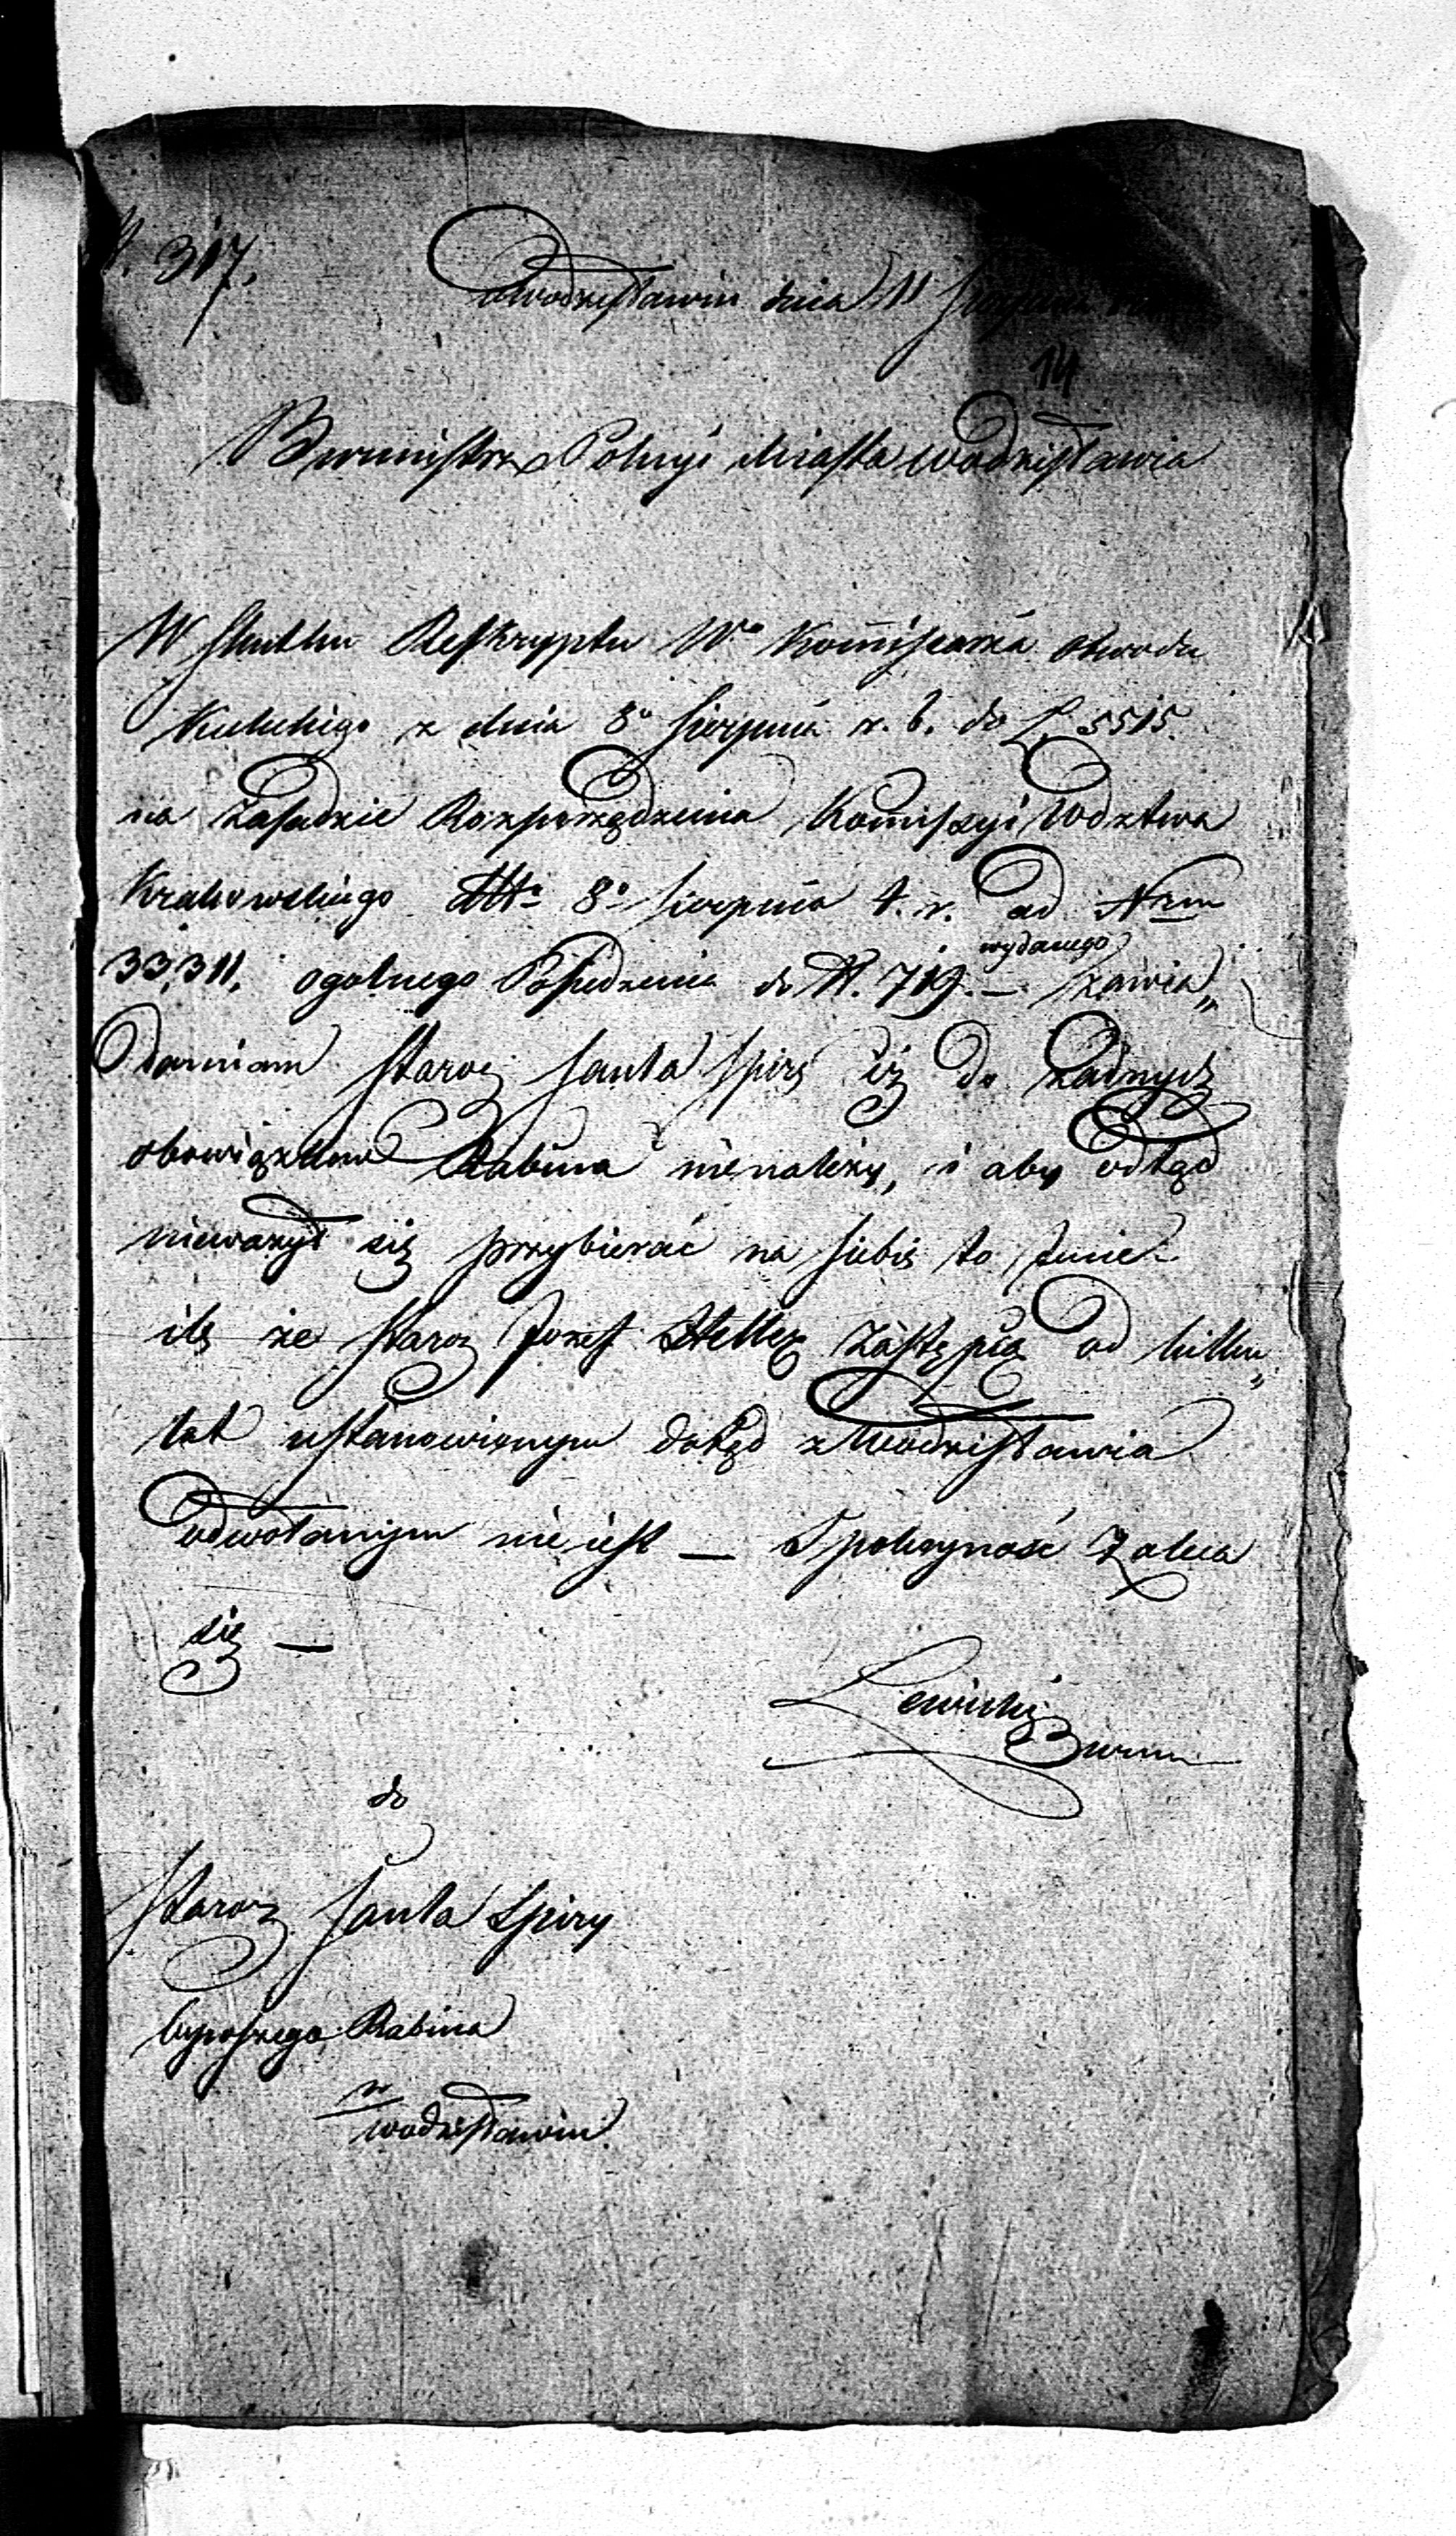 N. 317.
w Wodzisławiu dnia 11 Sierpnia
14
Burmistrz Policyi Miasta Wodzisławia
W skutku Reskryptu Wo Kommissarza Obwodu
Kieleckiego z dnia 8o Sierpnia r. b. do L. 5515.
na zasadzie Rozporządzenia Kommissyi Wdztwa
Krakowskiego ddto 8o Sierpnia t. r. ad Nrm
wydanego
33,311. ogolnego Posiedzenia do N. 719. — zawia„
damiam staroz Jankla Spirę iż do żadnych
obowiązkow Rabina nienależy, i aby odtąd
nieważył się przybierać na siebie to Imie
ile że staroz Jozef zastępcą od kilku„
lat ustanowionym dotąd z Wodzisławia
odwołanym nie iest — Spokoyność zaleca
się —
Lewicki
Burm
do
staroz Jankla Spiry
bywszego Rabina
w
Wodzisławiu